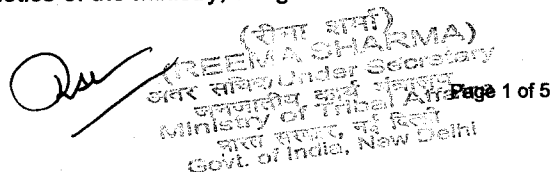 (रीमा शर्मा)
(REEMA SHARMA)
अवर सचिव/Under Secretary
जनजातीय कार्य मंत्रालय
Ministry of Tribal Affairs
Page 1 of 5
भारत सरकार, नई दिल्ली
Govt. of India, New Delhi